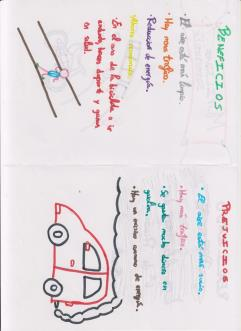 BENEFICIOS
• El aire está más limpio.
• Hay menos tráfico.
• Reducción de energía.
• En el caso de la bicicleta o ir
andando haces deporte y ganas
en salud.
PREJUICIOS
• El aire está más sucio.
• Hay más tráfico.
• Se gasta mucho dinero en
gasolina.
• Hay un excesivo consumo de energía.